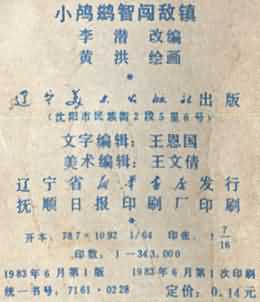 小鸪鹚智闯敌镇
李潜 改编
黄洪 绘画
辽宁美术出版社出版
（沈阳市民族街2段5里6号）
文字编辑：王恩国
美术编辑：王文倩
辽宁省新华书店发行
抚顺日报印刷厂印刷
开本：787×1092 1/64 印张：1 7/16
印数：1—343,000
1983年6月第1版 1983年6月第1次印刷
统一书号：7161·0228 定价：0.14元